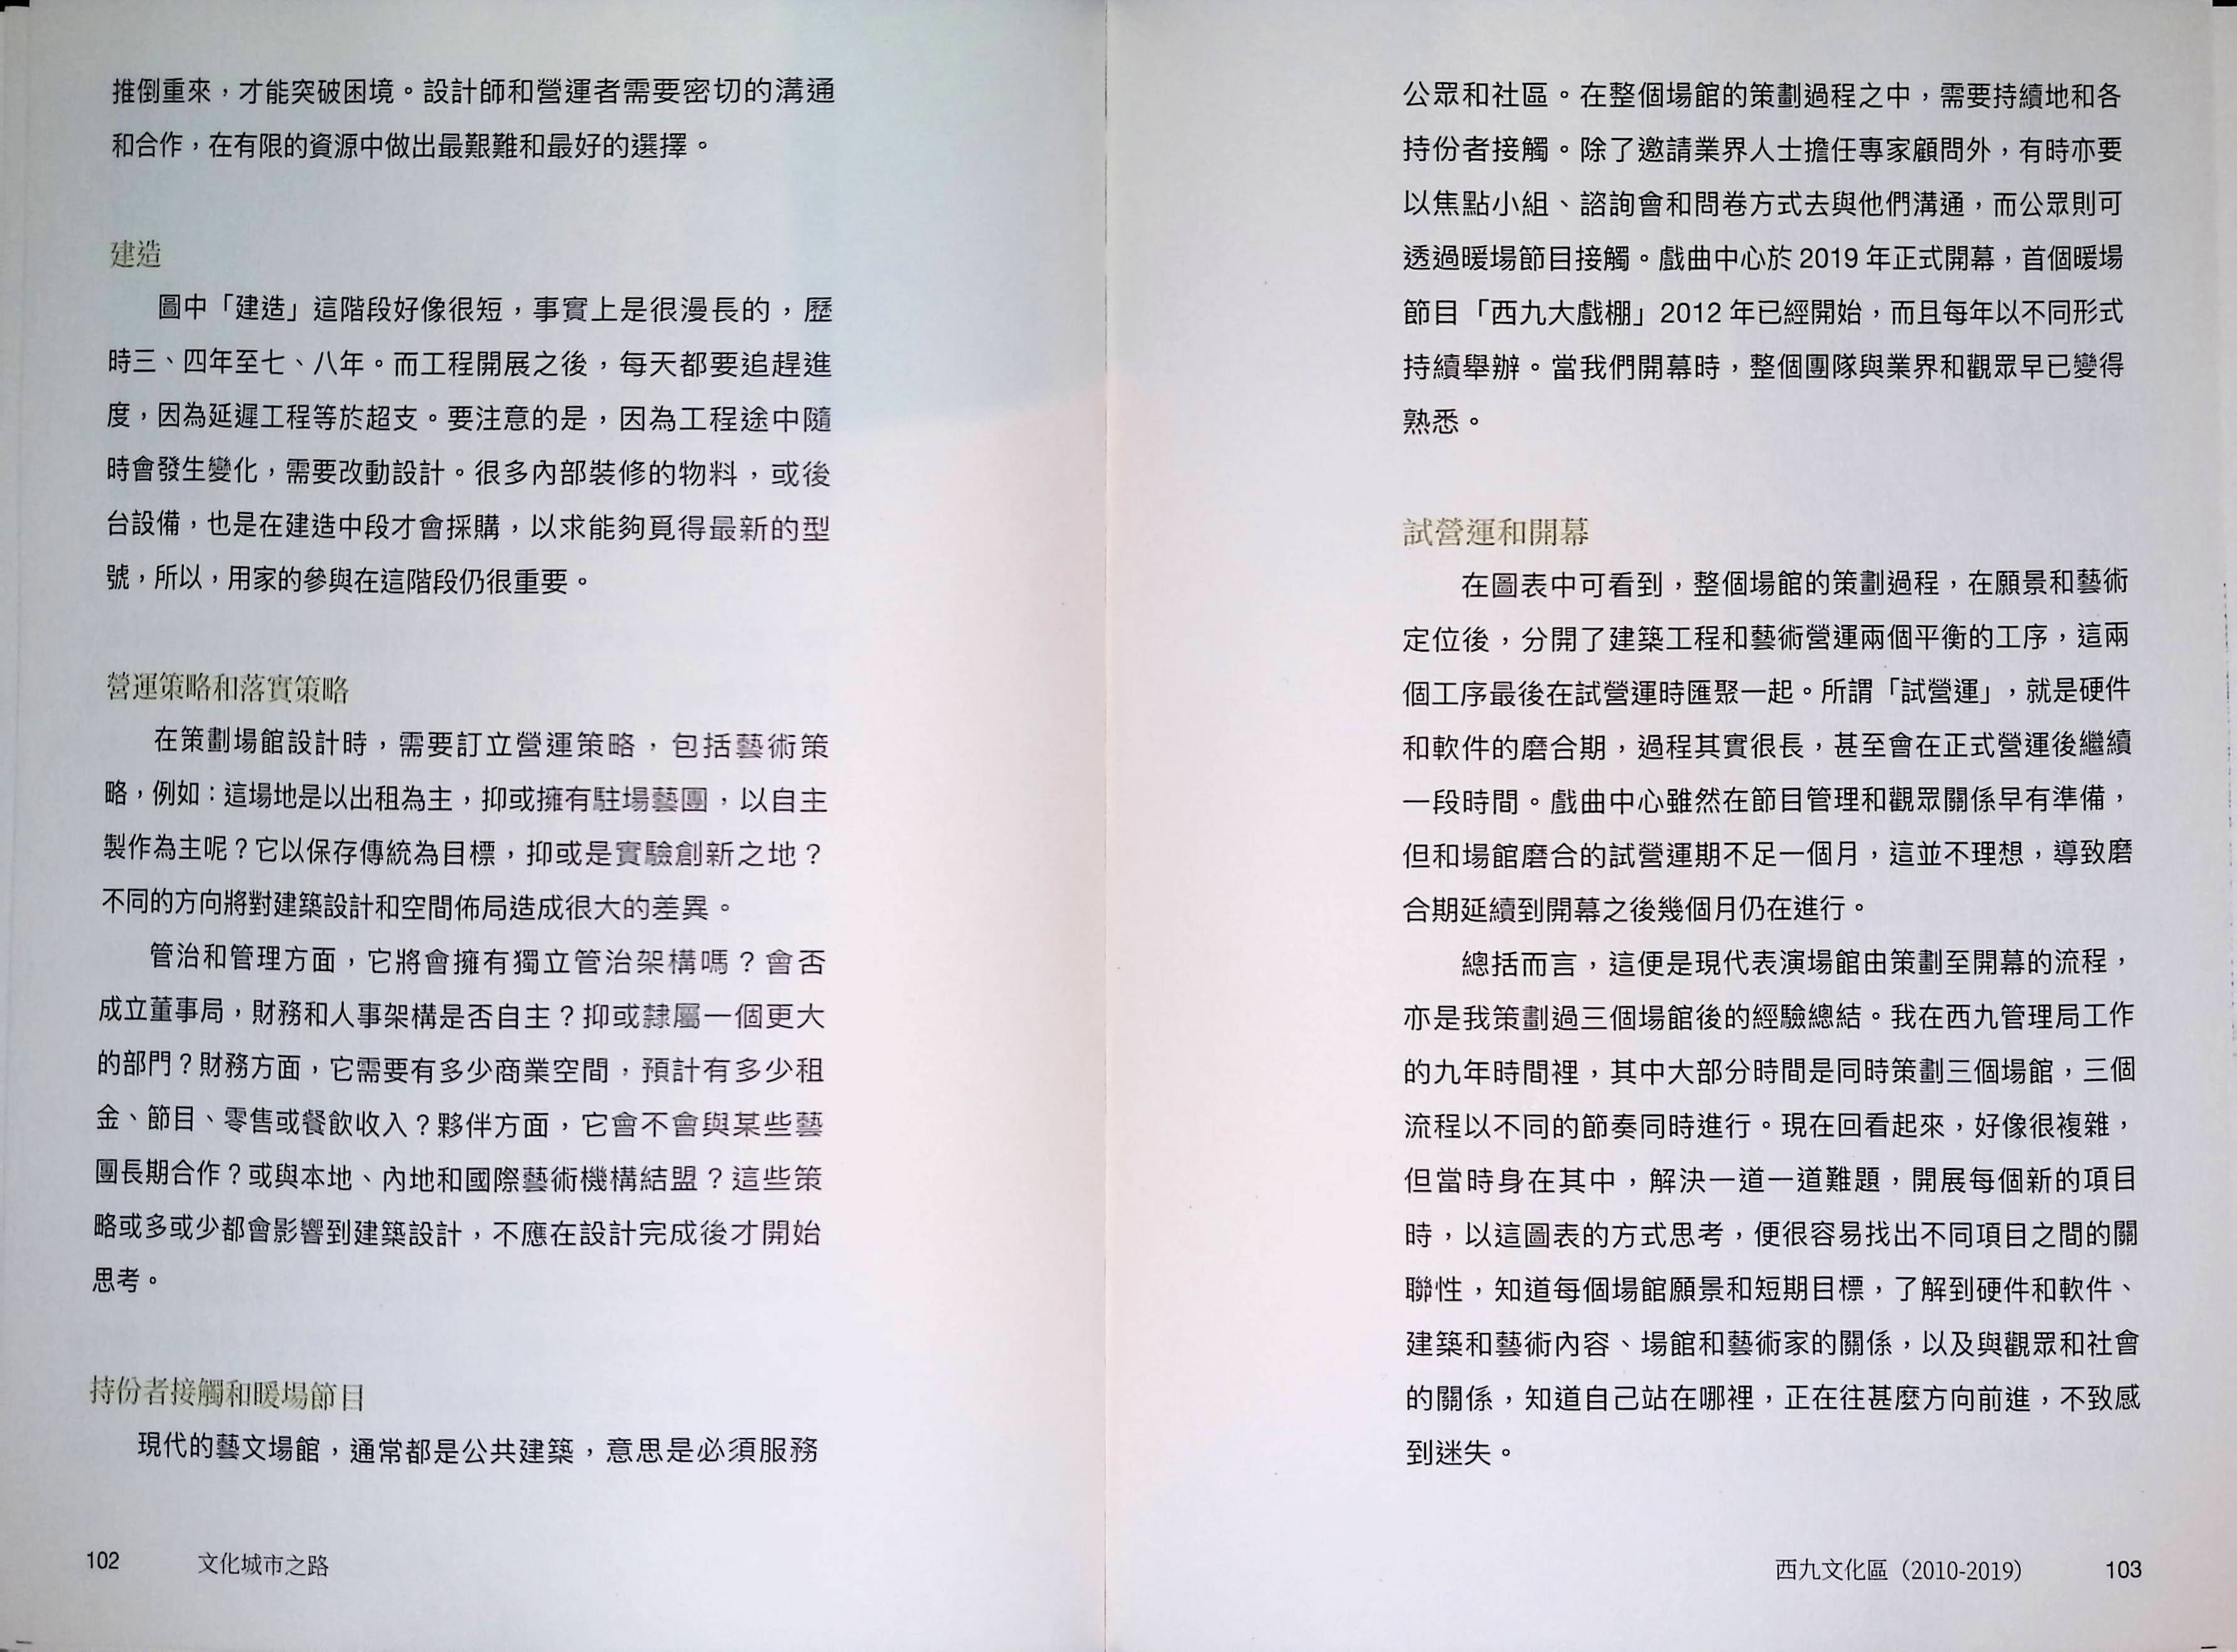 推倒重來，才能突破困境。設計師和營運者需要密切的溝通
和合作，在有限的資源中做出最艱難和最好的選擇。
建造
圖中「建造」這階段好像很短，事實上是很漫長的，歷
時三、四年至七、八年。而工程開展之後，每天都要追趕進
度，因為延遲工程等於超支。要注意的是，因為工程途中隨
時會發生變化，需要改動設計。很多內部裝修的物料，或後
台設備，也是在建造中段才會採購，以求能夠覓得最新的型
號，所以，用家的參與在這階段仍很重要。
營運策略和落實策略
在策劃場館設計時，需要訂立營運策略，包括藝術策
略，例如：這場地是以出租為主，抑或擁有駐場藝團，以自主
製作為主呢？它以保存傳統為目標，抑或是實驗創新之地？
不同的方向將對建築設計和空間佈局造成很大的差異。
管治和管理方面，它將會擁有獨立管治架構嗎？會否
成立董事局，財務和人事架構是否自主？抑或隸屬一個更大
的部門？財務方面，它需要有多少商業空間，預計有多少租
金、節目、零售或餐飲收入？夥伴方面，它會不會與某些藝
團長期合作？或與本地、內地和國際藝術機構結盟？這些策
略或多或少都會影響到建築設計，不應在設計完成後才開始
思考。
持份者接觸和暖場節目
現代的藝文場館，通常都是公共建築，意思是必須服務
102 文化城市之路
公眾和社區。在整個場館的策劃過程之中，需要持續地和各
持份者接觸。除了邀請業界人士擔任專家顧問外，有時亦要
以焦點小組、諮詢會和問卷方式去與他們溝通，而公眾則可
透過暖場節目接觸。戲曲中心於 2019 年正式開幕，首個暖場
節目「西九大戲棚」2012 年已經開始，而且每年以不同形式
持續舉辦。當我們開幕時，整個團隊與業界和觀眾早已變得
熟悉。
試營運和開幕
在圖表中可看到，整個場館的策劃過程，在願景和藝術
定位後，分開了建築工程和藝術營運兩個平衡的工序，這兩
個工序最後在試營運時匯聚一起。所謂「試營運」，就是硬件
和軟件的磨合期，過程其實很長，甚至會在正式營運後繼續
一段時間。戲曲中心雖然在節目管理和觀眾關係早有準備，
但和場館磨合的試營運期不足一個月，這並不理想，導致磨
合期延續到開幕之後幾個月仍在進行。
總括而言，這便是現代表演場館由策劃至開幕的流程，
亦是我策劃過三個場館後的經驗總結。我在西九管理局工作
的九年時間裡，其中大部分時間是同時策劃三個場館，三個
流程以不同的節奏同時進行。現在回看起來，好像很複雜，
但當時身在其中，解決一道一道難題，開展每個新的項目
時，以這圖表的方式思考，便很容易找出不同項目之間的關
聯性，知道每個場館願景和短期目標，了解到硬件和軟件、
建築和藝術內容、場館和藝術家的關係，以及與觀眾和社會
的關係，知道自己站在哪裡，正在往甚麼方向前進，不致感
到迷失。
西九文化區（2010-2019） 103